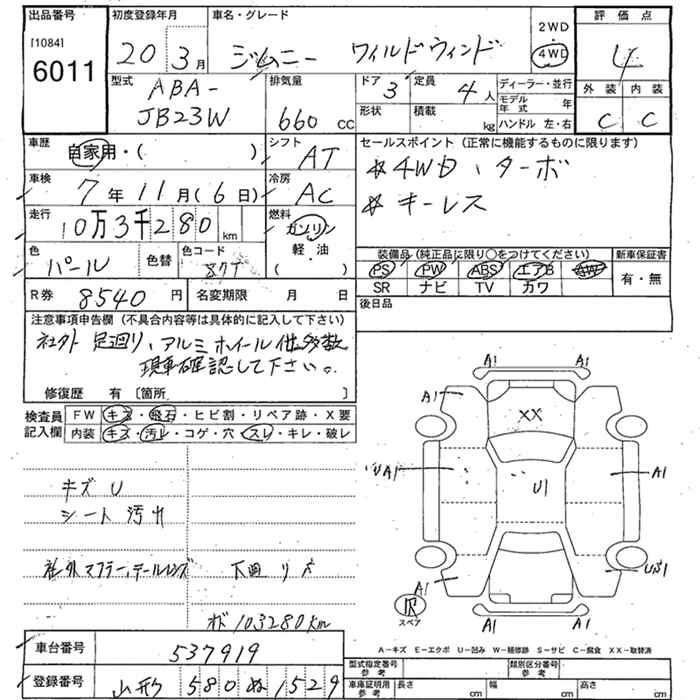 出品番号 初度登録年月 車名・グレード 2WD 評価点
[1084] 20 3月 ジムニー ワイルドウィンド 4WD 4
6011
型式 排気量 ドア 定員 ディーラー・並行 外装 内装
ABA- 3 4人 モデル年式 年
JB23W 660cc 形状 積載 kg ハンドル 左・右 C C
車歴 自家用・( ) シフト AT セールスポイント (正常に機能するものに限ります)
車検 7年11月(6日) 冷房 AC ☆4WD、ターボ
走行 10万3千280km 燃料 ガソリン ☆キーレス
軽油
( )
色 パール 色替 色コード 装備品 (純正品に限り○をつけてください) 新車保証書
PS PW ABS エアB AW 有・無
SR ナビ TV カワ
R券 8540円 名変期限 月 日 後日品
注意事項申告欄 (不具合内容等は具体的に記入して下さい)
社外 足廻り、アルミホイール 他多数
現車確認して下さい。
修復歴 有 〔箇所 〕
検査員記入欄 FW キズ・飛石・ヒビ割・リペア跡・X要
内装 キズ・汚レ・コゲ・穴・スレ・キレ・破レ
A1 A1
A1
XX
U1 A1 U1 A1
キズ U
シート 汚れ
社外マフラー、テールレンズ 下廻 サビ
A1
A1 A1
スペア
オド 103280km
A-キズ E-エクボ U-凹み W-補修跡 S-サビ C-腐食 XX-取替済
車台番号 537919
型式指定番号 参考 類別区分番号 参考
登録番号 山形 580 ぬ 1529
車庫証明用 参考 長さ cm 幅 cm 高さ cm